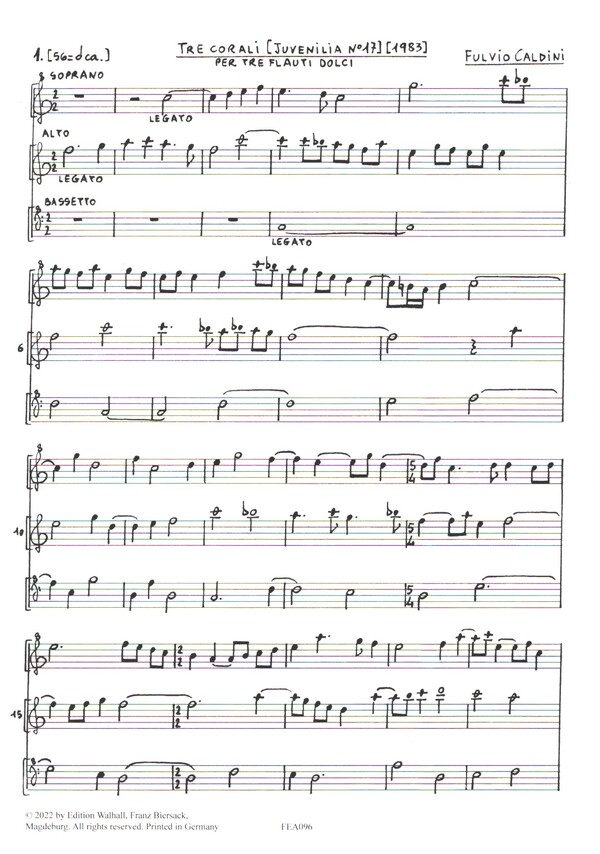 TRE CORALI [JUVENILIA Nº17][1983]
1. [56=𝅗𝅥 ca.]
PER TRE FLAUTI DOLCI
FULVIO CALDINI
8 SOPRANO
2
2
LEGATO
ALTO
2
2
LEGATO
BASSETTO
8
2
2
LEGATO
8
6
8
8
5
4
10
5
4
8
5
4
8
2
2
15
2
2
8
2
2
© 2022 by Edition Walhall, Franz Biersack,
Magdeburg. All rights reserved. Printed in Germany
FEA096